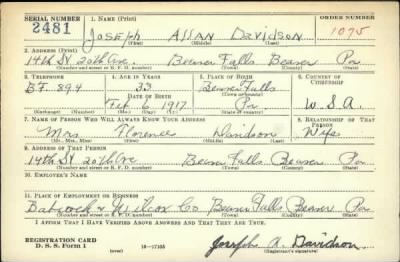 SERIAL NUMBER 1. NAME (Print) ORDER NUMBER
2481 JOSEPH ALLAN DAVIDSON 1075
(First) (Middle) (Last)
2. ADDRESS (Print)
14th St 20th Ave. Beaver Falls Beaver Pa
(Number and street or R. F. D. number) (Town) (County) (State)
3. TELEPHONE 4. AGE IN YEARS 5. PLACE OF BIRTH 6. COUNTRY OF CITIZENSHIP
B.F. 894 23 Beaver Falls
DATE OF BIRTH (Town or county)
Feb 6 1917 Pa U.S.A.
(Exchange) (Number) (Mo.) (Day) (Yr.) (State or country)
7. NAME OF PERSON WHO WILL ALWAYS KNOW YOUR ADDRESS 8. RELATIONSHIP OF THAT PERSON
Mrs Florence Davidson Wife
(Mr., Mrs., Miss) (First) (Middle) (Last)
9. ADDRESS OF THAT PERSON
14th St 20th Ave Beaver Falls Beaver Pa
(Number and street or R. F. D. number) (Town) (County) (State)
10. EMPLOYER'S NAME
11. PLACE OF EMPLOYMENT OR BUSINESS
Babcock & Wilcox Co Beaver Falls Beaver Pa
(Number and street or R. F. D. number) (Town) (County) (State)
I AFFIRM THAT I HAVE VERIFIED ABOVE ANSWERS AND THAT THEY ARE TRUE.
REGISTRATION CARD
D. S. S. FORM 1 (over) 16—17105 Joseph A. Davidson
(Registrant's signature)